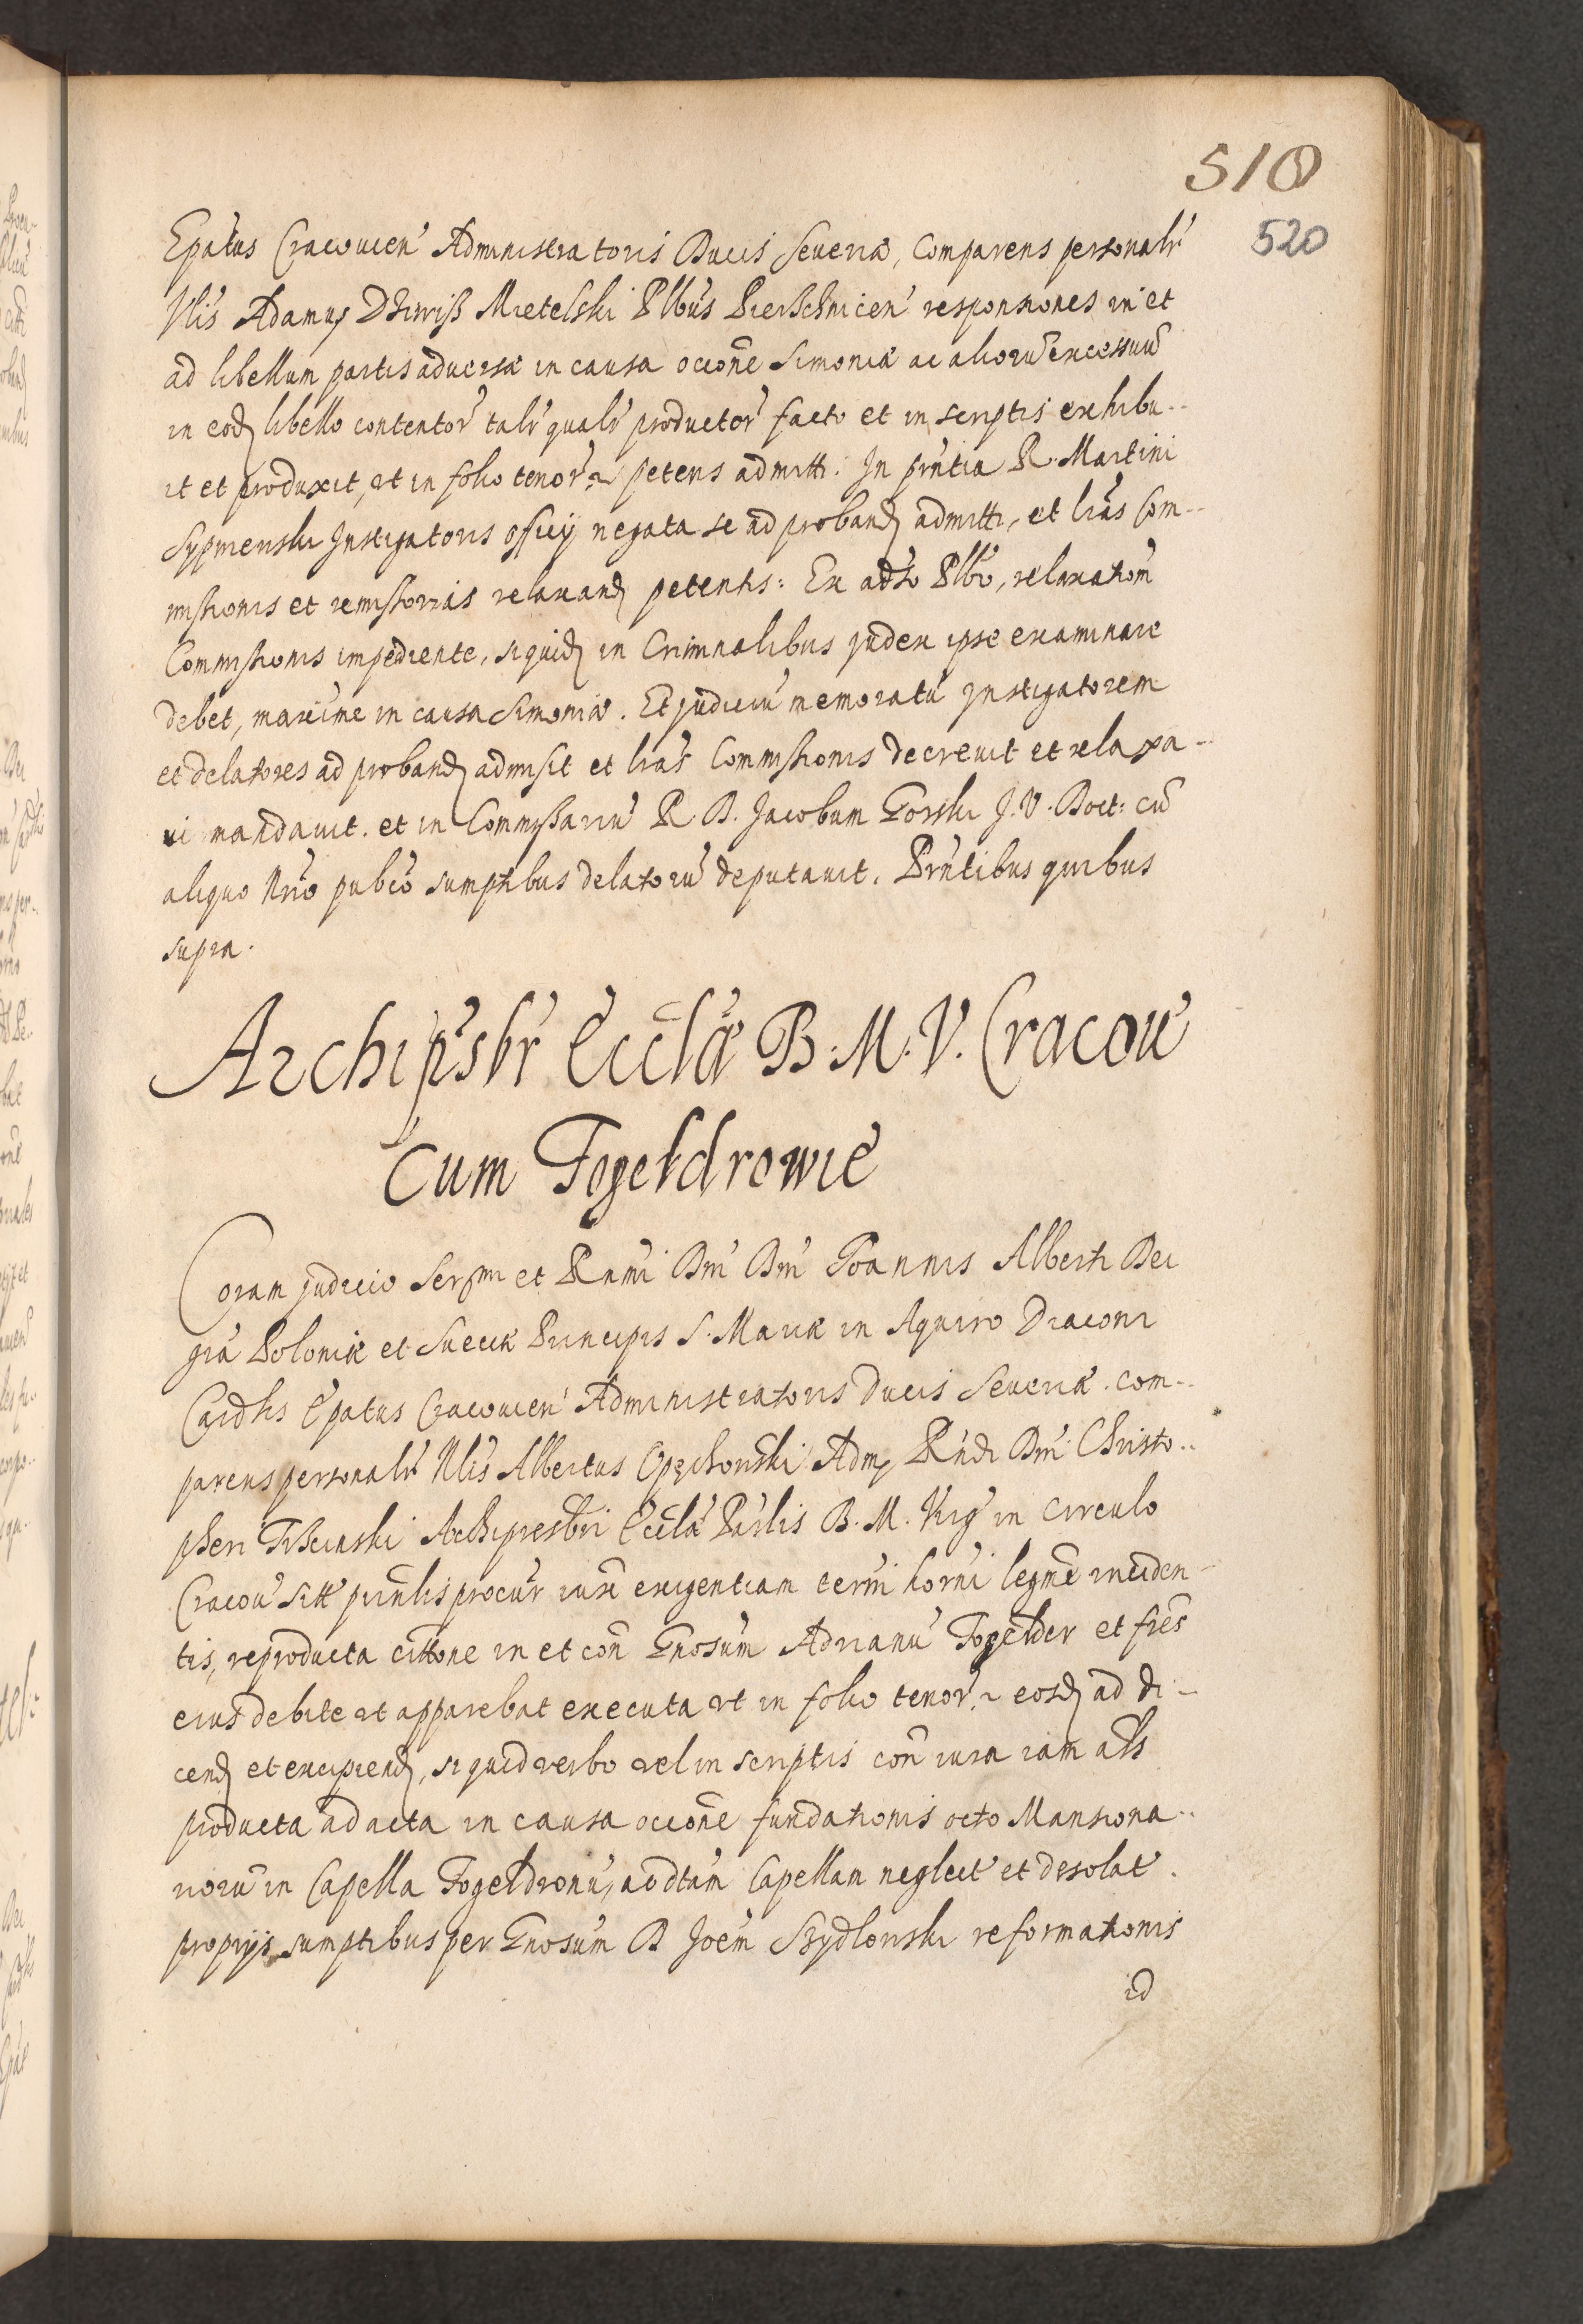 510
520
Epātus Cracouien' Administratoris Ducis Seueriæ, Comparens personalr'
Nlis Adamus Mietelski Plbus responsiones in et
ad libellum partis aduersæ in causa occōne Simoniæ ac alioru excessuu
in eod libello contentor' talr' qualr' productor' facto et in scriptis exhibu..
it et produxit, ut in folio tenor' petens admitti. In pn̄tia R. Martini
Instigatoris officij negata se ad proband admitti, et lrās Com..
missionis et remissorias relaxand petentis: Ex adso Plbo, relaxation'
Commissionis impediente, siquid in Criminalibus judex ipse examinare
debet, maxime in causa Simoniæ. Et judiciu memoratu Instigatorem
et delatores ad proband admisit et lrās Commissionis decreuit et relaxa..
ri mandauit. et in Commissariu R. D. Jacobum Gorski J. V. Doct: cū
aliquo Nrio pubco sumptibus delatoru deputauit. Prn̄tibus quibus
supra.
Archiprsbr Eccłæ B. M. V. Cracou
Cum Fogeldrowie
Coram judicio Sermi et Rnmi Dni Dni Joannis Alberti Dei
grā Poloniæ et Sueciæ Principis S. Mariæ in Aquiro Diaconi
Cardlis Epatus Cracouien' Administratoris ducis Seueriæ. com..
parens personalr' Nlis Albertus Opechowski Adm Rndi Dni Christo..
pheri Trzcinski Archipresbri Eccłæ Parlis B. M. Virg' in circulo
Cracou' sitt' prinlis procur' iuxe exigentiam termi horni legme inciden..
tis, reproducta citōne in et con̄ Gnosum Adrianu Fogelder et fres
eius debite ut apparebat executa ut in folio tenor' eosd ad di..
cend et excipiend, si quid verbo vel in scriptis con̄ iura iam als
producta ad acta in causa occōne fundationis octo Mansiona..
rioru in Capella Fogeldronu, ac dtam Capellam neglect' et desolat'.
proprijs sumptibus per Gnosum D Joem Szydlowski reformationis
id